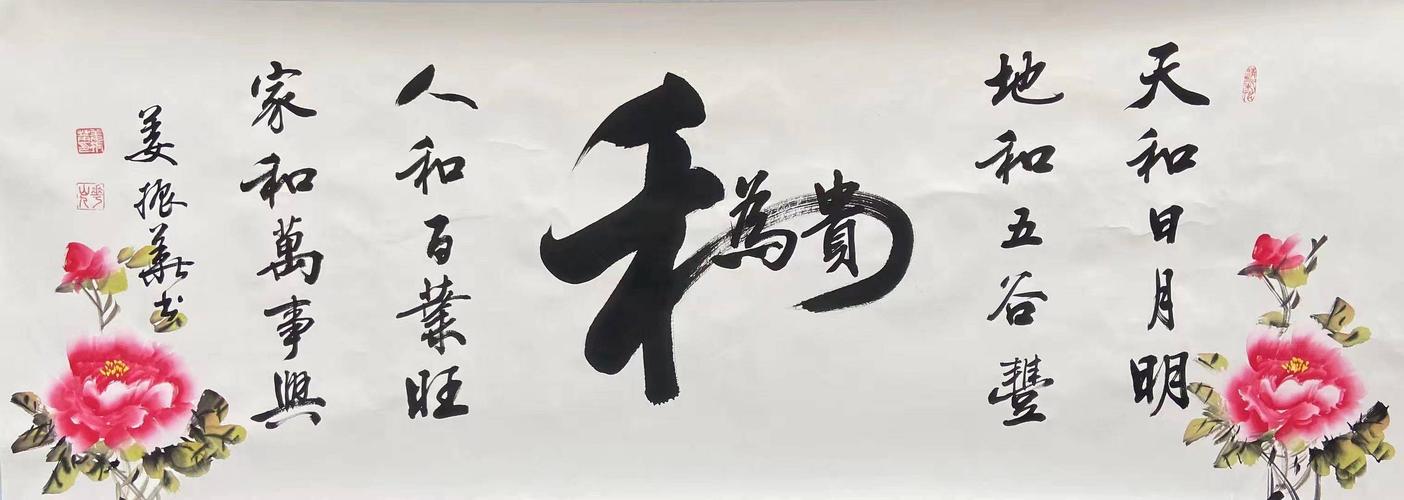 天和日月明
地和五谷豐
和為貴
人和百業旺
家和萬事興
姜振華书